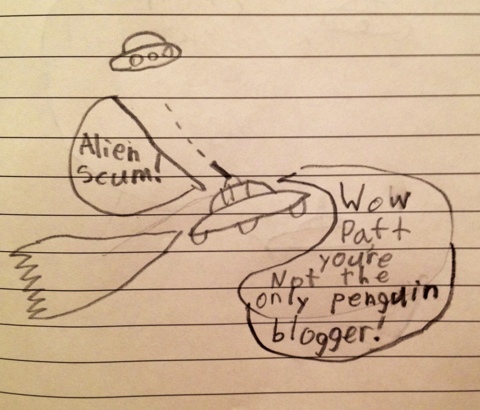 Alien
Scum!
Wow
Patt
you're
Not the
only penguin
blogger!